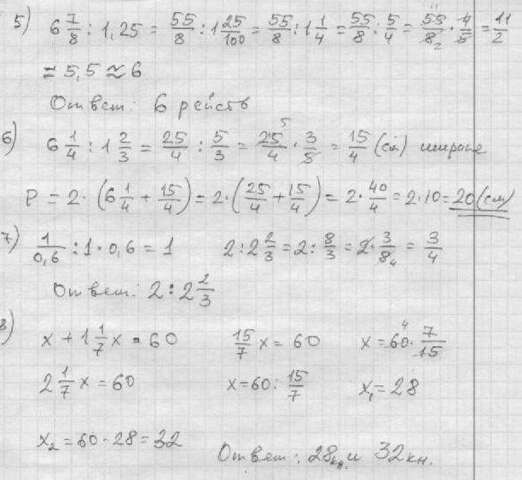 5) 6 7/8 : 1,25 = 55/8 : 1 25/100 = 55/8 : 1 1/4 = 55/8 : 5/4 = 55/8 · 4/5 = 11/2
= 5,5 ≈ 6
Ответ: 6 рейств
6) 6 1/4 : 1 2/3 = 25/4 : 5/3 = 25/4 · 3/5 = 15/4 (см) ширина
P = 2 · (6 1/4 + 15/4) = 2 · (25/4 + 15/4) = 2 · 40/4 = 2 · 10 = 20 (см)
7) 1/0,6 : 1 · 0,6 = 1 2 : 2 2/3 = 2 : 8/3 = 2 · 3/8 = 3/4
Ответ: 2 : 2 2/3
8) x + 1 1/7 x = 60 15/7 x = 60 x = 60 · 7/15
2 1/7 x = 60 x = 60 : 15/7 x₁ = 28
x₂ = 60 - 28 = 32
Ответ: 28 кн. и 32 кн.